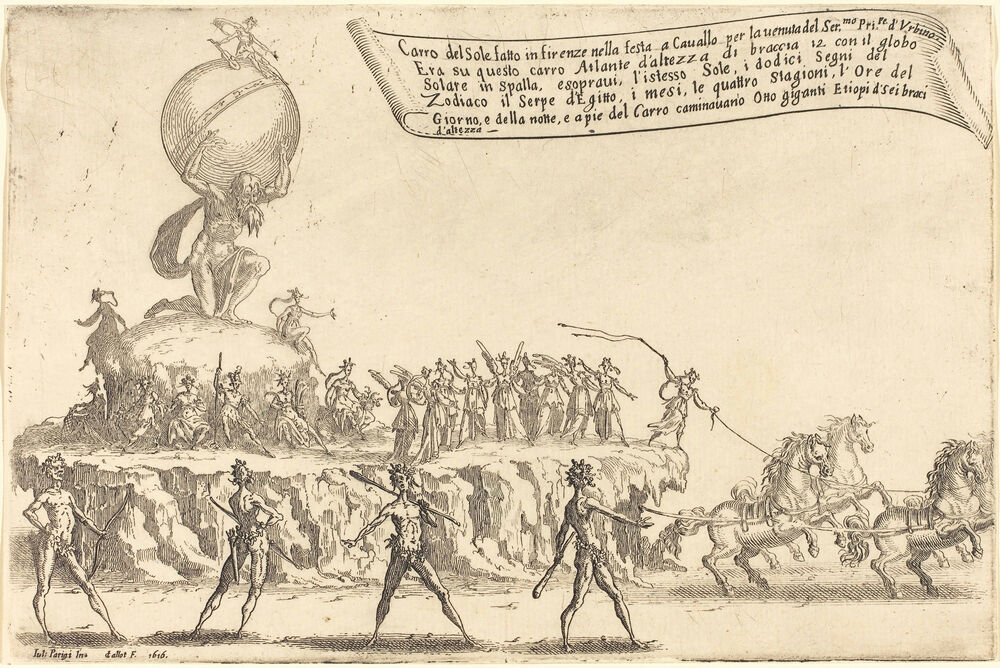 Carro del Sole fatto in firenze nella festa a Cauallo per la uenuta del Ser.mo Pri.pe d'Vrbino.
Era su questo carro Atlante d'altezza di braccia 12 con il globo
Solare in Spalla, esopraui, l'istesso Sole, i dodici Segni del
Zodiaco il Serpe d'Egitto, i mesi, le quattro Stagioni, l'Ore del
Giorno, e della notte, e a pie del Carro caminauano Otto giganti Etiopi d'Sei braci
d'altezza
Iul: Parigi Inv Callot F. 1616.